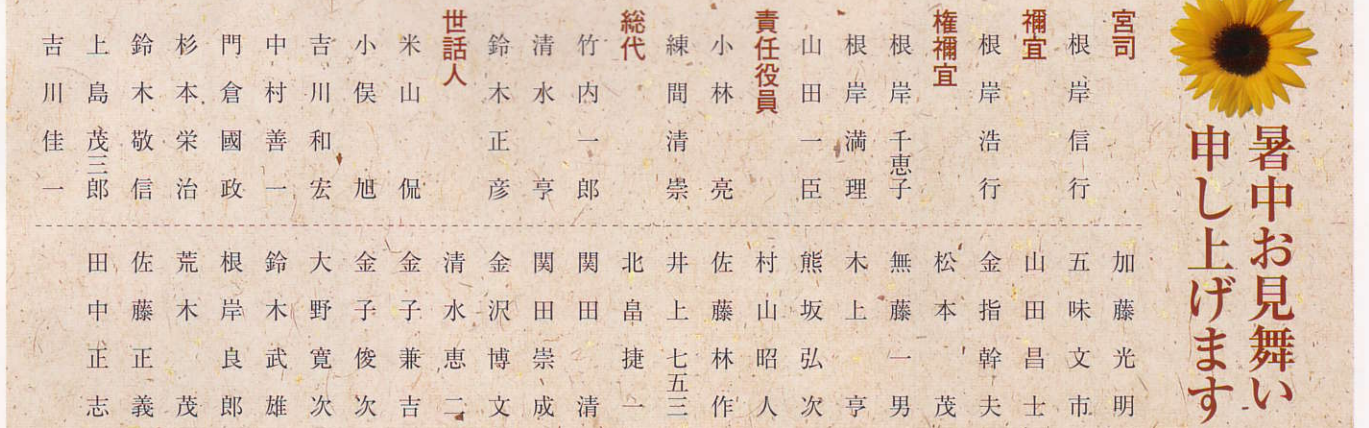 暑中お見舞い
申し上げます
宮司
根岸信行
禰宜
根岸浩行
権禰宜
根岸千恵子
根岸満理
山田一臣
責任役員
小林亮
練間清崇
総代
竹内一郎
清水亨
鈴木正彦
世話人
米山侃
小俣旭
吉川和宏
中村善一
門倉國政
杉本栄治
鈴木敬信
上島茂三郎
吉川佳一
加藤光明
五味文市
山田昌士
金指幹夫
松本茂
無藤一男
木上亨
熊坂弘次
村山昭人
佐藤林作
井上七五三
北畠捷一
関田清
関田崇成
金沢博文
清水恵二
金子兼吉
金子俊次
大野寛次
鈴木武雄
根岸良郎
荒木茂
佐藤正義
田中正志